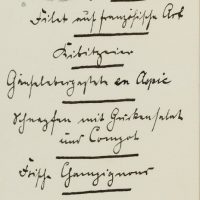 Filet auf französische Art
Kibitzeier
Gänseleberpastete en Aspic
Schnepfen mit Gurkensalat
und Compot
Frische Champignons